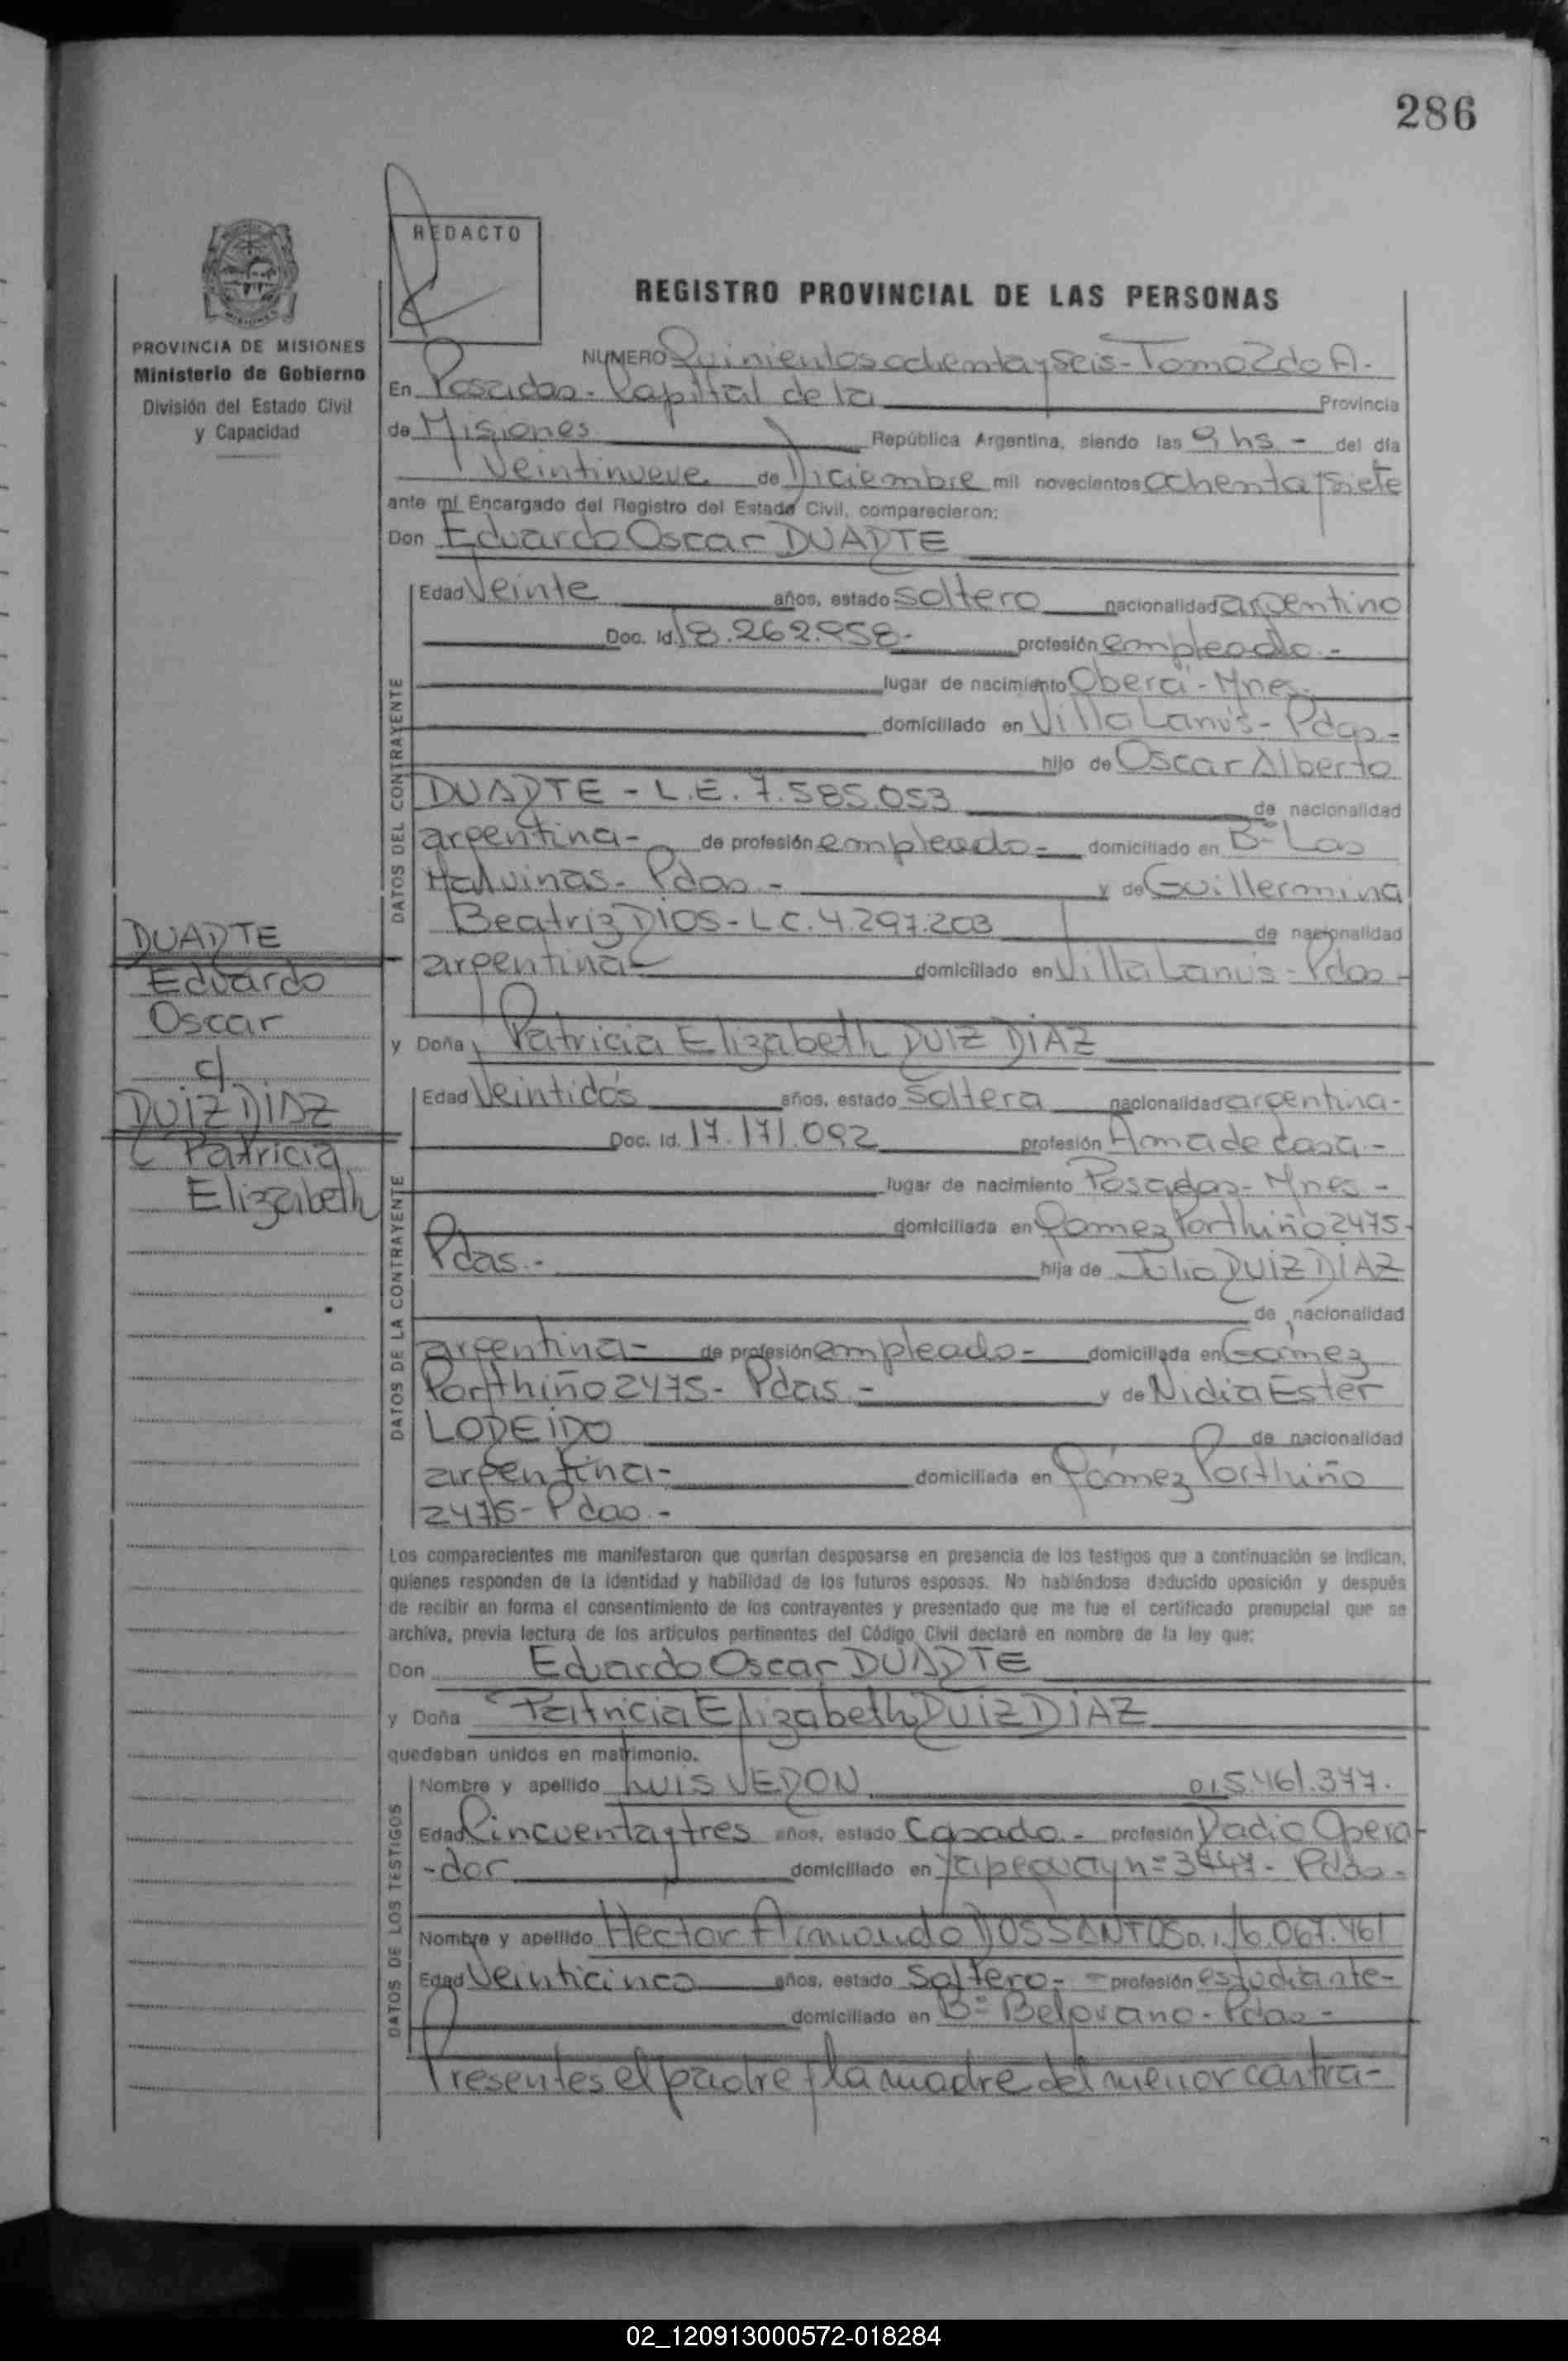 286
REDACTO
REGISTRO PROVINCIAL DE LAS PERSONAS
PROVINCIA DE MISIONES
Ministerio de Gobierno
División del Estado Civil
y Capacidad
NUMERO Quinientos ochenta y seis - Tomo 2do A.-
En Posadas - Capital de la Provincia
de Misiones República Argentina, siendo las 9 hs - del día
Veintinueve de Diciembre mil novecientos ochenta y siete
ante mí Encargado del Registro del Estado Civil, comparecieron:
Don Eduardo Oscar DUARTE
DATOS DEL CONTRAYENTE
Edad Veinte años, estado soltero nacionalidad argentino
Doc. Id. 18.262.958- profesión empleado.-
lugar de nacimiento Oberá - Mnes.
domiciliado en Villa Lanús - Pdas -
hijo de Oscar Alberto
DUARTE - L.E. 7.585.053 de nacionalidad
argentina - de profesión empleado - domiciliado en Bº Las
Malvinas - Pdas - y de Guillermina
Beatriz RIOS - L.C. 4.297.203 de nacionalidad
argentina - domiciliado en Villa Lanús - Pdas -
y Doña Patricia Elizabeth RUIZ DIAZ
DUARTE
Eduardo
Oscar
c/
RUIZ DIAZ
Patricia
Elizabeth
DATOS DE LA CONTRAYENTE
Edad Veintidós años, estado Soltera nacionalidad argentina -
Doc. Id. 17.171.092 profesión Ama de casa -
lugar de nacimiento Posadas - Mnes -
domiciliada en Gomez Porthiño 2475
Pdas.- hija de Julio RUIZ DIAZ
de nacionalidad
argentina - de profesión empleado - domiciliada en Gómez
Porthiño 2475 - Pdas - y de Nidia Ester
LOREIRO de nacionalidad
argentina - domiciliada en Gómez Porthiño
2475 - Pdas.-
Los comparecientes me manifestaron que querían desposarse en presencia de los testigos que a continuación se indican,
quienes responden de la identidad y habilidad de los futuros esposos. No habiéndose deducido oposición y después
de recibir en forma el consentimiento de los contrayentes y presentado que me fue el certificado prenupcial que se
archiva, previa lectura de los artículos pertinentes del Código Civil declaré en nombre de la ley que:
Don Eduardo Oscar DUARTE
y Doña Patricia Elizabeth RUIZ DIAZ
quedaban unidos en matrimonio.
DATOS DE LOS TESTIGOS
Nombre y apellido LUIS VERON D.I. 5.461.377.
Edad Cincuenta y tres años, estado Casado - profesión Radio Opera-
-dor domiciliado en Yapeyú y nº 3447 - Pdas -
Nombre y apellido Hector Armando DOS SANTOS D.I. 16.067.461
Edad Veinticinco años, estado Soltero - profesión estudiante -
domiciliado en Bº Belgrano - Pdas -
Presentes el padre y la madre del menor contra-
02_120913000572-018284